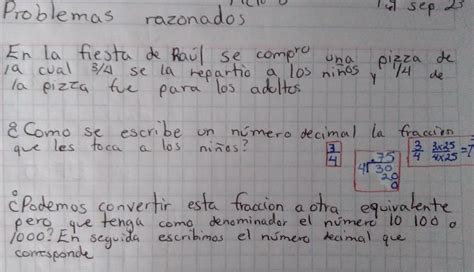 Problemas razonados sep 23
En la fiesta de Raúl se compro una pizza de
la cual 3/4 se la repartio a los niños y 1/4 de
la pizza fue para los adultos
¿Como se escribe un número decimal la fraccion
que les toca a los niños? 3/4 4 .75 30 20 0 3/4 3x25/4x25 =
¿Podemos convertir esta fraccion a otra equivalente
pero que tenga como denominador el número 10 100 o
1000? En seguida escribimos el número decimal que
corresponde